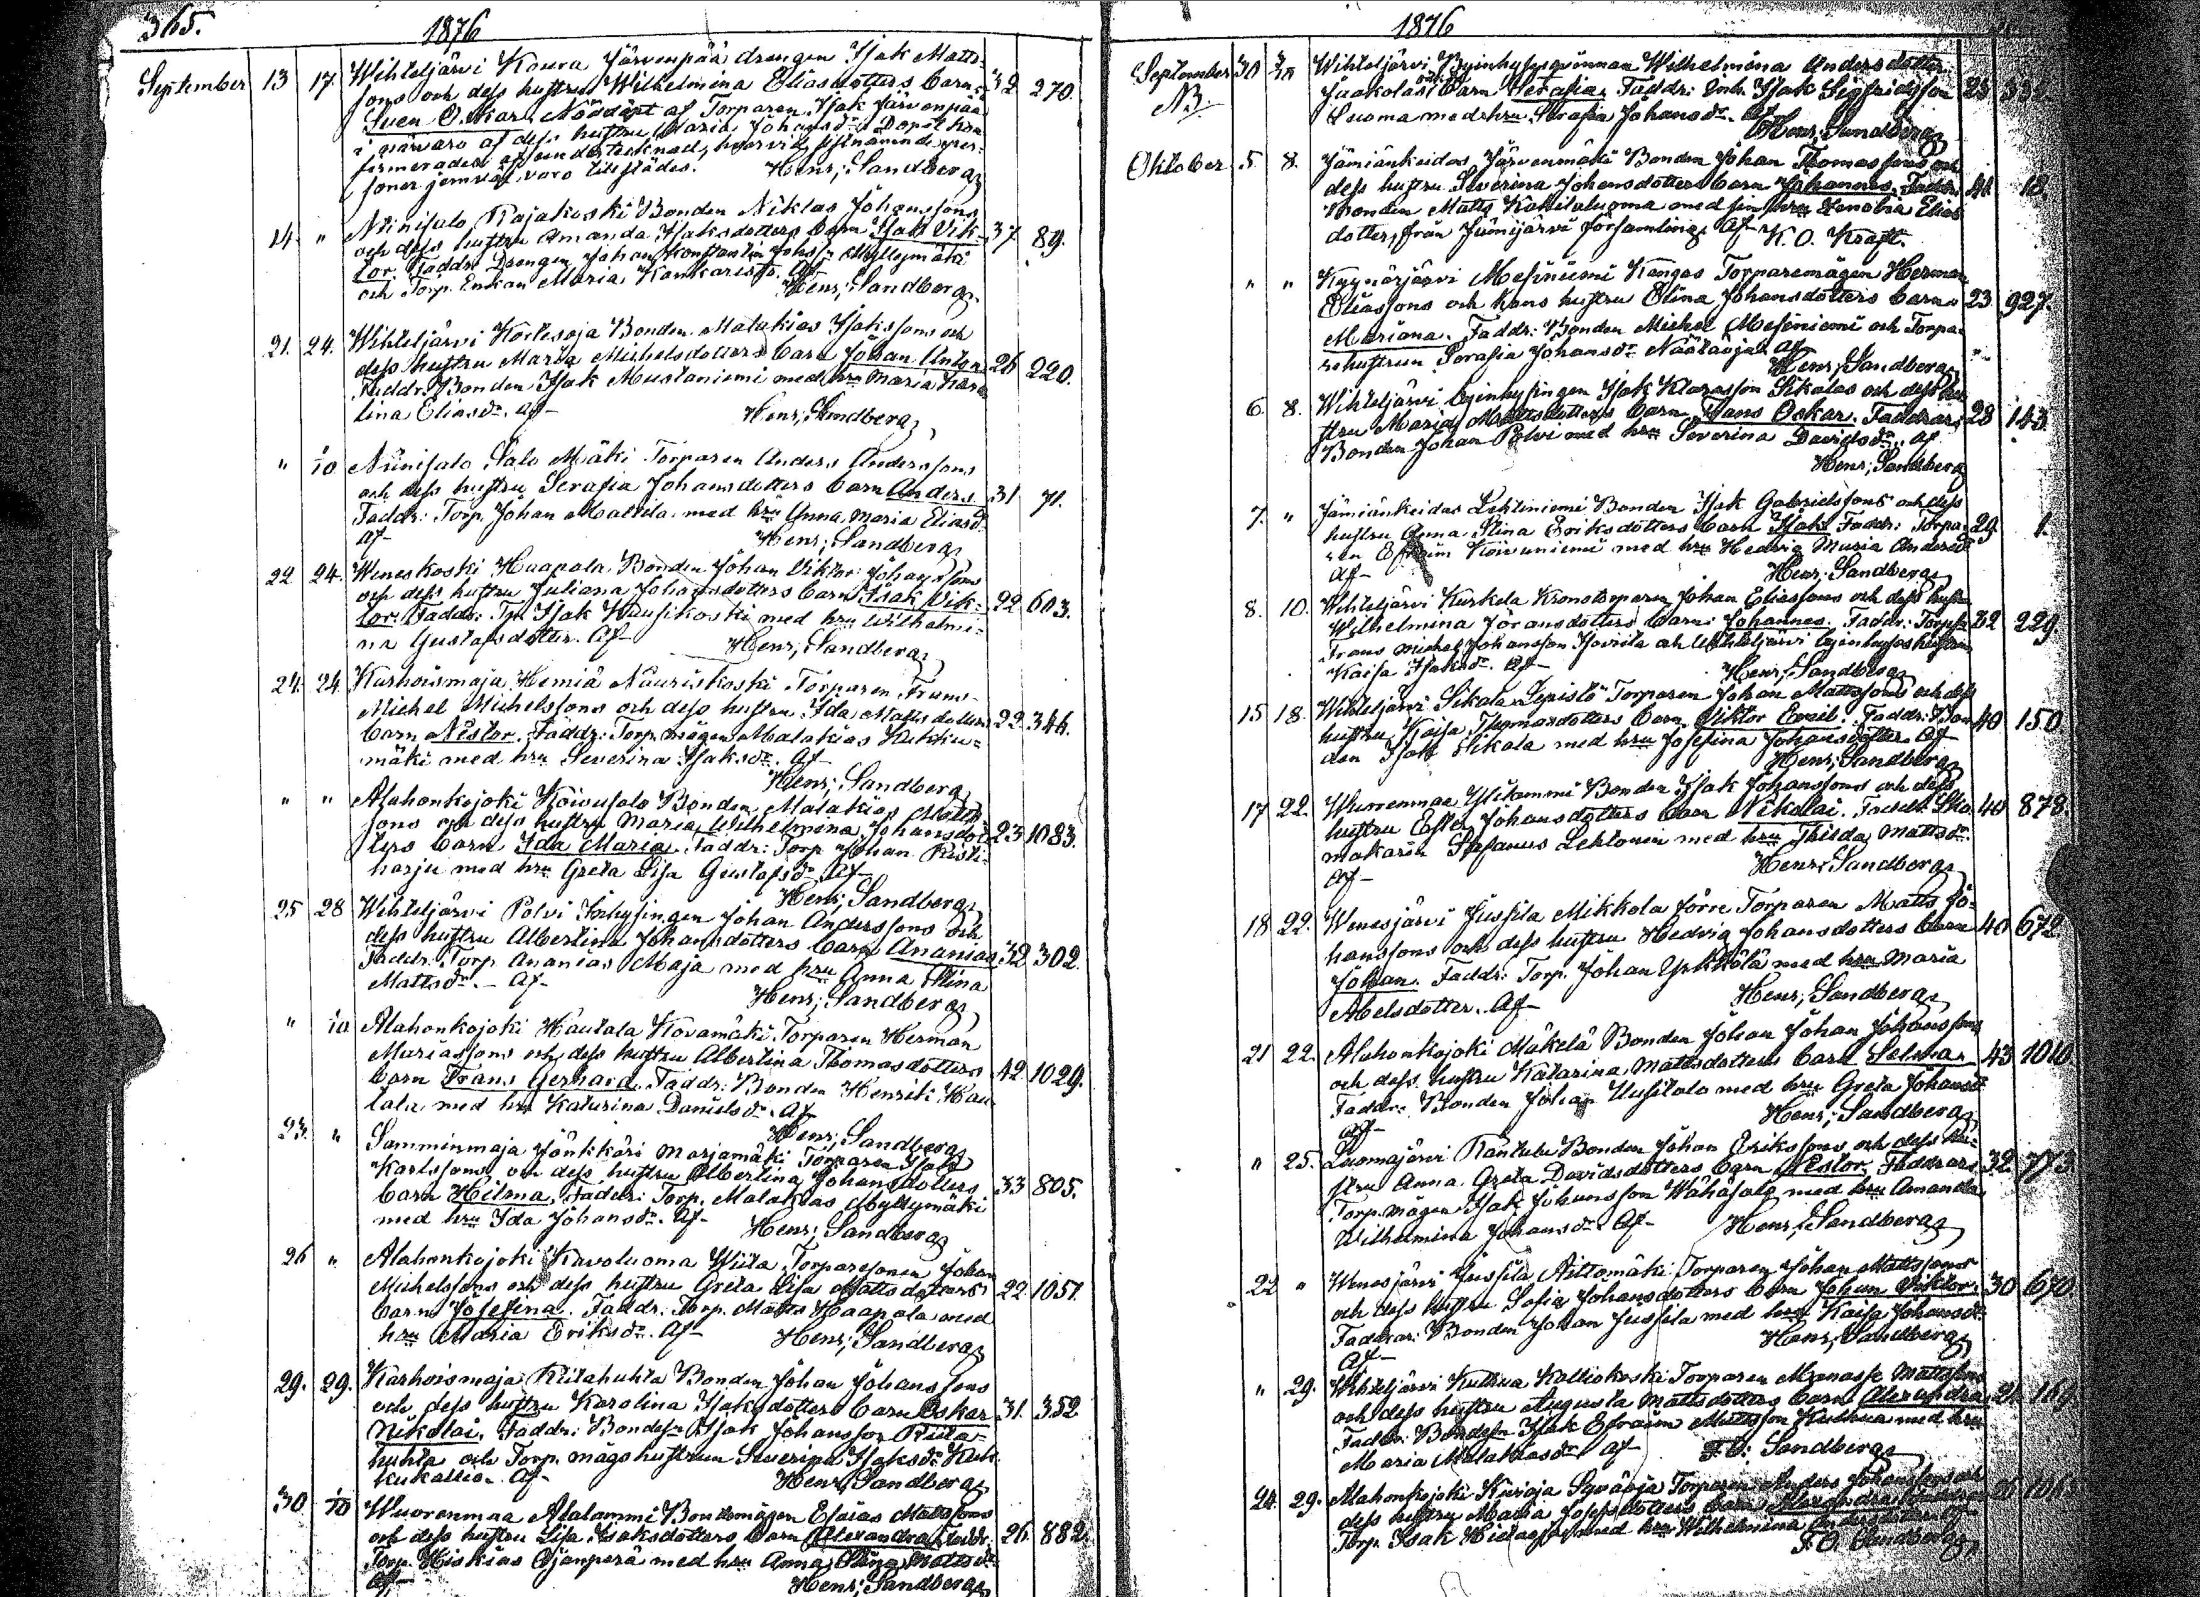 365.
1876
September 13 17. Wihteljärvi Koura Järvenpää drengen Isak Matts-
sons och dess hustru Wilhelmina Eliasdotters barn 32 270.
Sven Oskar. Nöddöpt af Torparen Isak Järvenpää
i närvaro af dess hustru Maria Johansdr. Dopet kon-
firmerades af undertecknad, hvarvid sistnämnde per-
soner jemväl voro tillstädes. Henr; Sandberg
14. " Niinisalo Rajakoski Bonden Niklas Johanssons
och dess hustru Amanda Isaksdotters barn Isak Vik- 37 89.
tor. Faddr: Drengen Johan Konstantin Johss: Myllymäki
och Torp. Enkan Maria Kankaristo. Af
Henr; Sandberg
21. 24. Wihteljärvi Koitesoja Bonden Malakias Isakssons och
dess hustru Maria Michelsdotters barn Johan Anton 26 220.
Faddr. Bonden Isak Mustaniemi med hru Maria Karo-
lina Eliasdr. Af-
Henr; Sandberg
" 1/10 Niinisalo Salo Mäki Torparen Anders Anderssons
och dess hustru Serafia Johansdotters barn Anders. 31 71.
Faddr: Torp. Johan Mattila med hru Anna Maria Eliasdr
Af- Henr; Sandberg
22 24. Weneskoski Haapala Bonden Johan Viktor Johanssons
och dess hustru Juliana Johansdotters barn Isak Vik- 22 603.
tor. Faddr: Tp. Isak Kausikoski med hru Wilhelmi-
na Gustafsdotter. Af- Henr; Sandberg
24. 24 Karhoismaja Hemiä Nauriskoski Torparen Frans
Michel Michelssons och dess hustru Ida Mattsdotters 22 346.
barn Nestor. Faddr: Torp. mågen Malakias Kukku-
mäki med hru Severina Isaksdr. Af-
Henr; Sandberg
" " Alahonkajoki Koivusalo Bonden Malakias Matts-
sons och dess hustru Maria Wilhelmina Johansdot- 23 1083.
ters barn Ida Maria. Faddr: Torp Johan Risti-
harju med hru Greta Lisa Gustafsdr. Af-
Henr; Sandberg
25 28 Wihteljärvi Polvi Inhysingen Johan Anderssons och
dess hustru Albertina Johansdotters barn Ananias 32 302.
Faddr. Torp. Ananias Maja med hru Anna Stina
Mattsdr. - Af- Henr; Sandberg
" 1/10 Alahonkajoki Hautala Kovamäki Torparen Herman
Mariassons och dess hustru Albertina Thomasdotters
barn Frans Gerhard. Faddr: Bonden Henrik Hau- 42. 1029.
tala med hru Katarina Danielsdr. Af
Henr; Sandberg
23. " Samminmaja Jänkkäri Marjamäki Torparen Isak
Karlssons och dess hustru Albertina Johansdotters
barn Hilma. Faddr: Torp. Malakias Myllymäki 33 805.
med hru Ida Johansdr. Af- Henr; Sandberg
26 " Alahonkajoki Karvoluoma Wiita Torparesonen Johan
Michelssons och dess hustru Greta Lisa Mattsdotters 22. 1051.
barn Josefina. Faddr: Torp. Matts Haapala med
hru Maria Eriksdr. Af- Henr; Sandberg
29. 29. Karhoismaja Riitahuhta Bonden Johan Johanssons
och dess hustru Karolina Isaksdotters barn Oskar 31. 352
Nikolai. Faddr: Bondesn Isak Johansson Riita-
huhta och Torp. mågs hustrun Severina Isaksdr Kuk-
kukallio. Af- Henr; Sandberg
30 1/10 Wuorenmaa Alalammi Bondemågen Esaias Mattssons
och dess hustru Lisa Isaksdotters barn Alexandra. Faddr. 26. 882.
Torp. Hiskias Ojanperä med hru Anna Stina Mattsdr
Af- Henr; Sandberg
1876
September 30 Wihteljärvi Byinhysesqvinnan Wilhelmina Andersdotter
NB. Jaakolas barn Serafia. Faddr: Inh. Isak Sigfridsson 25
Luoma med hru Serafia Johansdr. Af
Henr; Sandberg
Oktober 5 8. Jämiänkeidas Järvenmäki Bonden Johan Thomassons och
dess hustru Severina Johansdotters barn Johannes. Faddr. 41. 18.
Bonden Matts Kokilaluoma med sin hru Zenobia Elias
dotter, från Jämijärvi församling. Af K. O. Kraft.
" " Kyynärjärvi Mesiniemi Kangas Torparemågen Herman
Eliassons och hans hustru Elina Johansdotters barn 23 927.
Mariana. Faddr: Bonden Michel Mesiniemi och Torpa-
rehustrun Serafia Johansdr Näätäoja Af
Henr; Sandberg
6. 8. Wihteljärvi byinhysingen Isak Klarasson Sikalas och dess hu-
stru Maria Mattsdotters barn Frans Oskar. Faddrar: 28 143
Bonden Johan Polvi med hru Severina Davidsdr. Af.
Henr; Sandberg
7. " Jämiänkeidas Lehtiniemi Bonden Isak Gabrielssons och dess
hustru Anna Stina Eriksdotters barn Isak. Faddr: Torpa- 29. 1.
ren Efraim Koivuniemi med hru Hedvig Maria Andersdr
Af- Henr; Sandberg
8. 10. Wihteljärvi Kurkela Kronotorparen Johan Eliassons och dess hustru
Wilhelmina Göransdotters barn: Johannes. Faddr: 32 229
Frans Michel Johansson och Wihteljärvi byinhyses hustrun
Kaisa Isaksdr. Af- Henr; Sandberg
15 18. Wihteljärvi Sikala Sepistö Torparen Johan Mattssons och dess
hustru Kaisa Thomasdotters barn Viktor Emil. Faddr: Bon- 40 150
den Isak Sikala med hru Josefina Johansdotter Af
Henr; Sandberg
17 22. Wuorenmaa Ylilammi Bonden Isak Johanssons och dess
hustru Ester Johansdotters barn Nikolai. Faddr. Sko- 40 878.
makaren Stefanus Lehtonen med hru Thilda Mattsdr.
Af- Henr; Sandberg
18 22. Wenesjärvi Jussila Mikkola förre Torparen Matts Jo-
hanssons och dess hustru Hedvig Johansdotters barn 40 672.
Johan. Faddr: Torp. Johan Yrkkölä med hru Maria
Abelsdotter. Af- Henr; Sandberg
21 22. Alahonkajoki Mäkelä Bonden Johan Johan Johanssons
och dess hustru Katarina Mattsdotters barn Selma. 43
Faddr: Bonden Johan Uusitalo med hru Greta Johansdr
Af- Henr; Sandberg
" 25. Luomajärvi Bonden Johan Erikssons och dess hu-
stru Anna Greta Davidsdotters barn Nestor. Faddrar: 32. 773
Torp. mågen Isak Johansson Wähäsalo med hru Amanda
Wilhelmina Johansdr. Af- Henr; Sandberg
22 " Wenesjärvi Jussila Aittomäki Torparen Johan Mattssons
och dess hustru Sofia Johansdotters barn Johan Viktor. 30 670
Faddrar: Bonden Johan Jussila med hru Kaisa Johansdr
Af- Henr; Sandberg
" 29. Wihteljärvi Kuthua Kalliokoski Torparen Manasse Mattssons
och dess hustru Augusta Mattsdotters barn Alexandra 169
Faddr: Bondesn Isak Efraim Mattsson Kuthua med hru
Maria Malakiasdr Af- F. O. Sandberg
24. 29. Alahonkajoki Syväoja Torparen Anders Johanssons och
dess hustru Maria Josefsdotters barn Alexandra
Torp. Isak med hru Wilhelmina
F. O. Sandberg